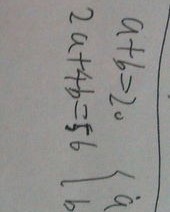 a+b=20 { a
2a+4b=56 { b